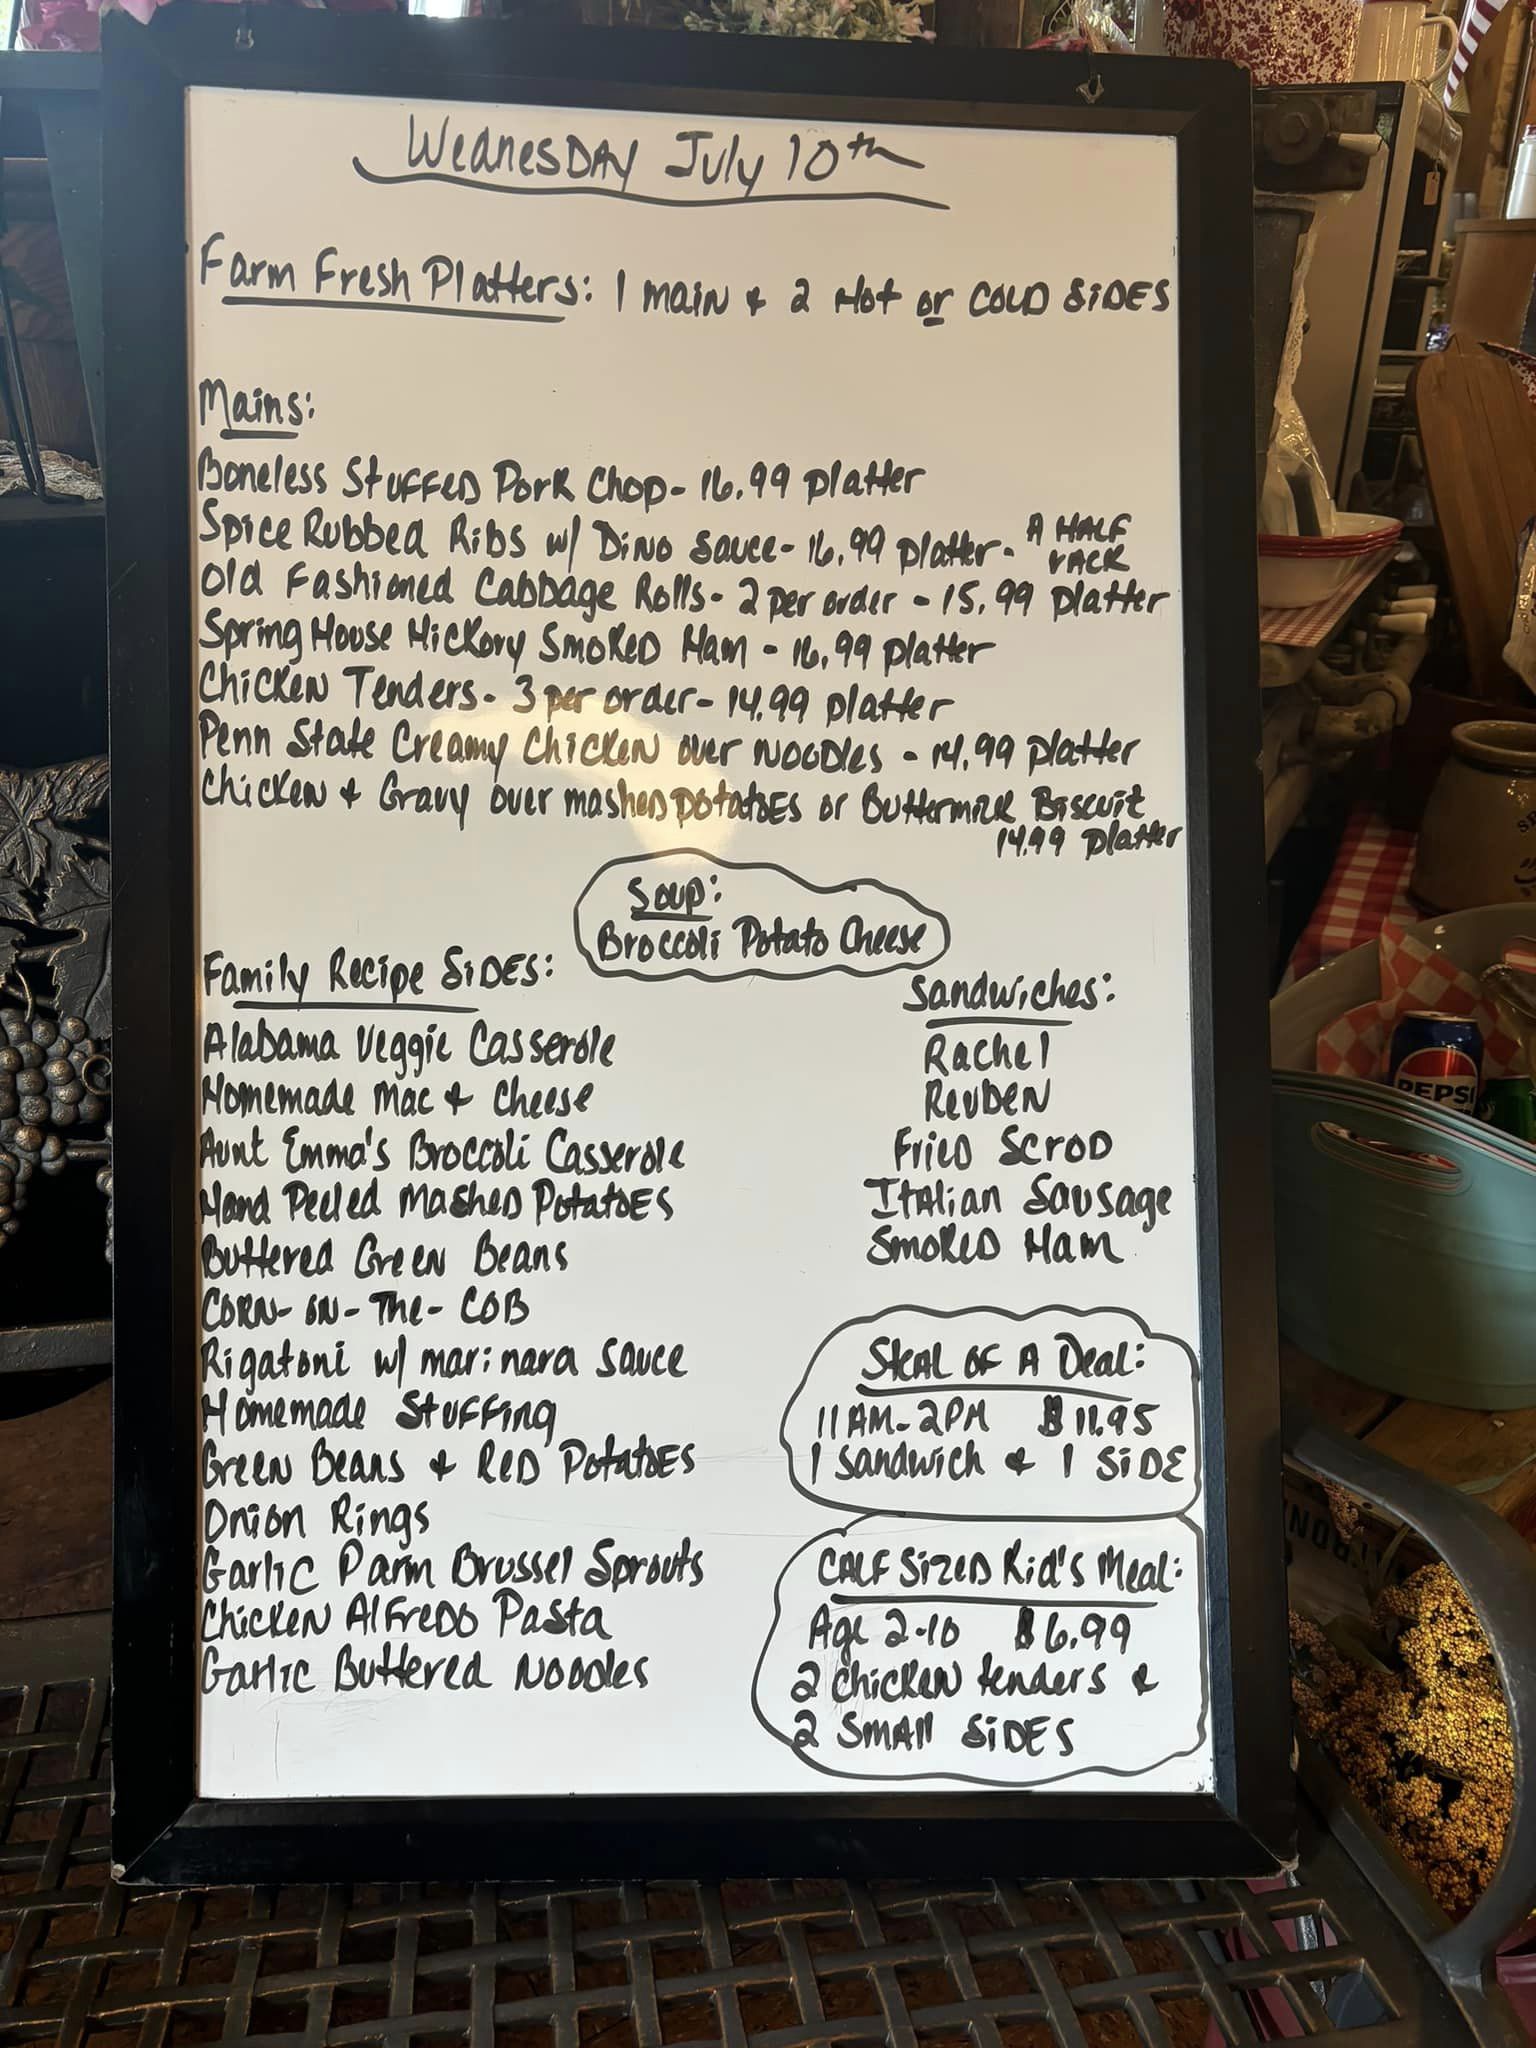 Wednesday July 10th
Farm Fresh Platters: 1 main & 2 Hot or COLD SIDES
Mains:
Boneless Stuffed Pork Chop - 16.99 platter
Spice Rubbed Ribs w/ Dino Sauce - 16.99 platter - A HALF RACK
Old Fashioned Cabbage Rolls - 2 per order - 15.99 platter
Spring House Hickory Smoked Ham - 16.99 platter
Chicken Tenders - 3 per order - 14.99 platter
Penn State Creamy Chicken over Noodles - 14.99 platter
Chicken & Gravy over mashed potatoes or Buttermilk Biscuit
14.99 platter
Soup:
Broccoli Potato Cheese
Family Recipe SIDES:
Alabama Veggie Casserole
Homemade Mac & Cheese
Aunt Emma's Broccoli Casserole
Hand Peeled Mashed Potatoes
Buttered Green Beans
CORN-ON-THE-COB
Rigatoni w/ marinara sauce
Homemade Stuffing
Green Beans & Red Potatoes
Onion Rings
Garlic Parm Brussel Sprouts
Chicken Alfredo Pasta
Garlic Buttered Noodles
Sandwiches:
Rachel
Reuben
Fried Scrod
Italian Sausage
Smoked Ham
Steal of A Deal:
11AM-2PM $11.95
1 Sandwich & 1 SIDE
CALF Sized Kid's Meal:
Age 2-10 $6.99
2 Chicken tenders &
2 SMALL SIDES
PEPSI